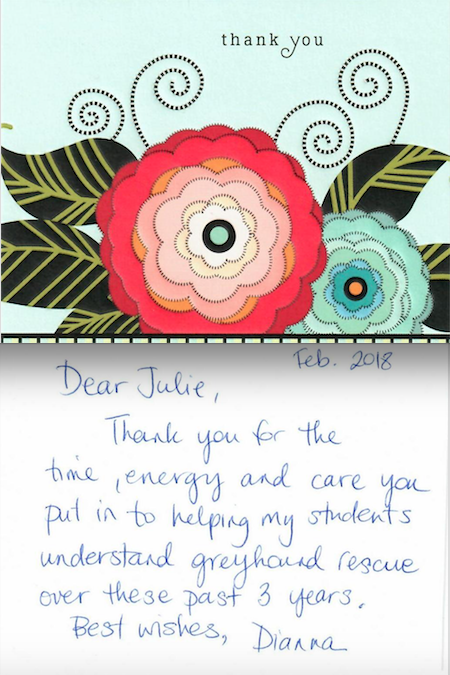 thank you
Feb. 2018
Dear Julie,
Thank you for the
time, energy and care you
put in to helping my students
understand greyhound rescue
over these past 3 years.
Best wishes, Dianna